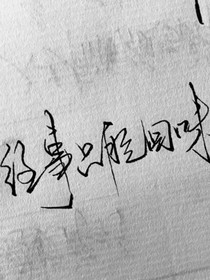 往事只能回味